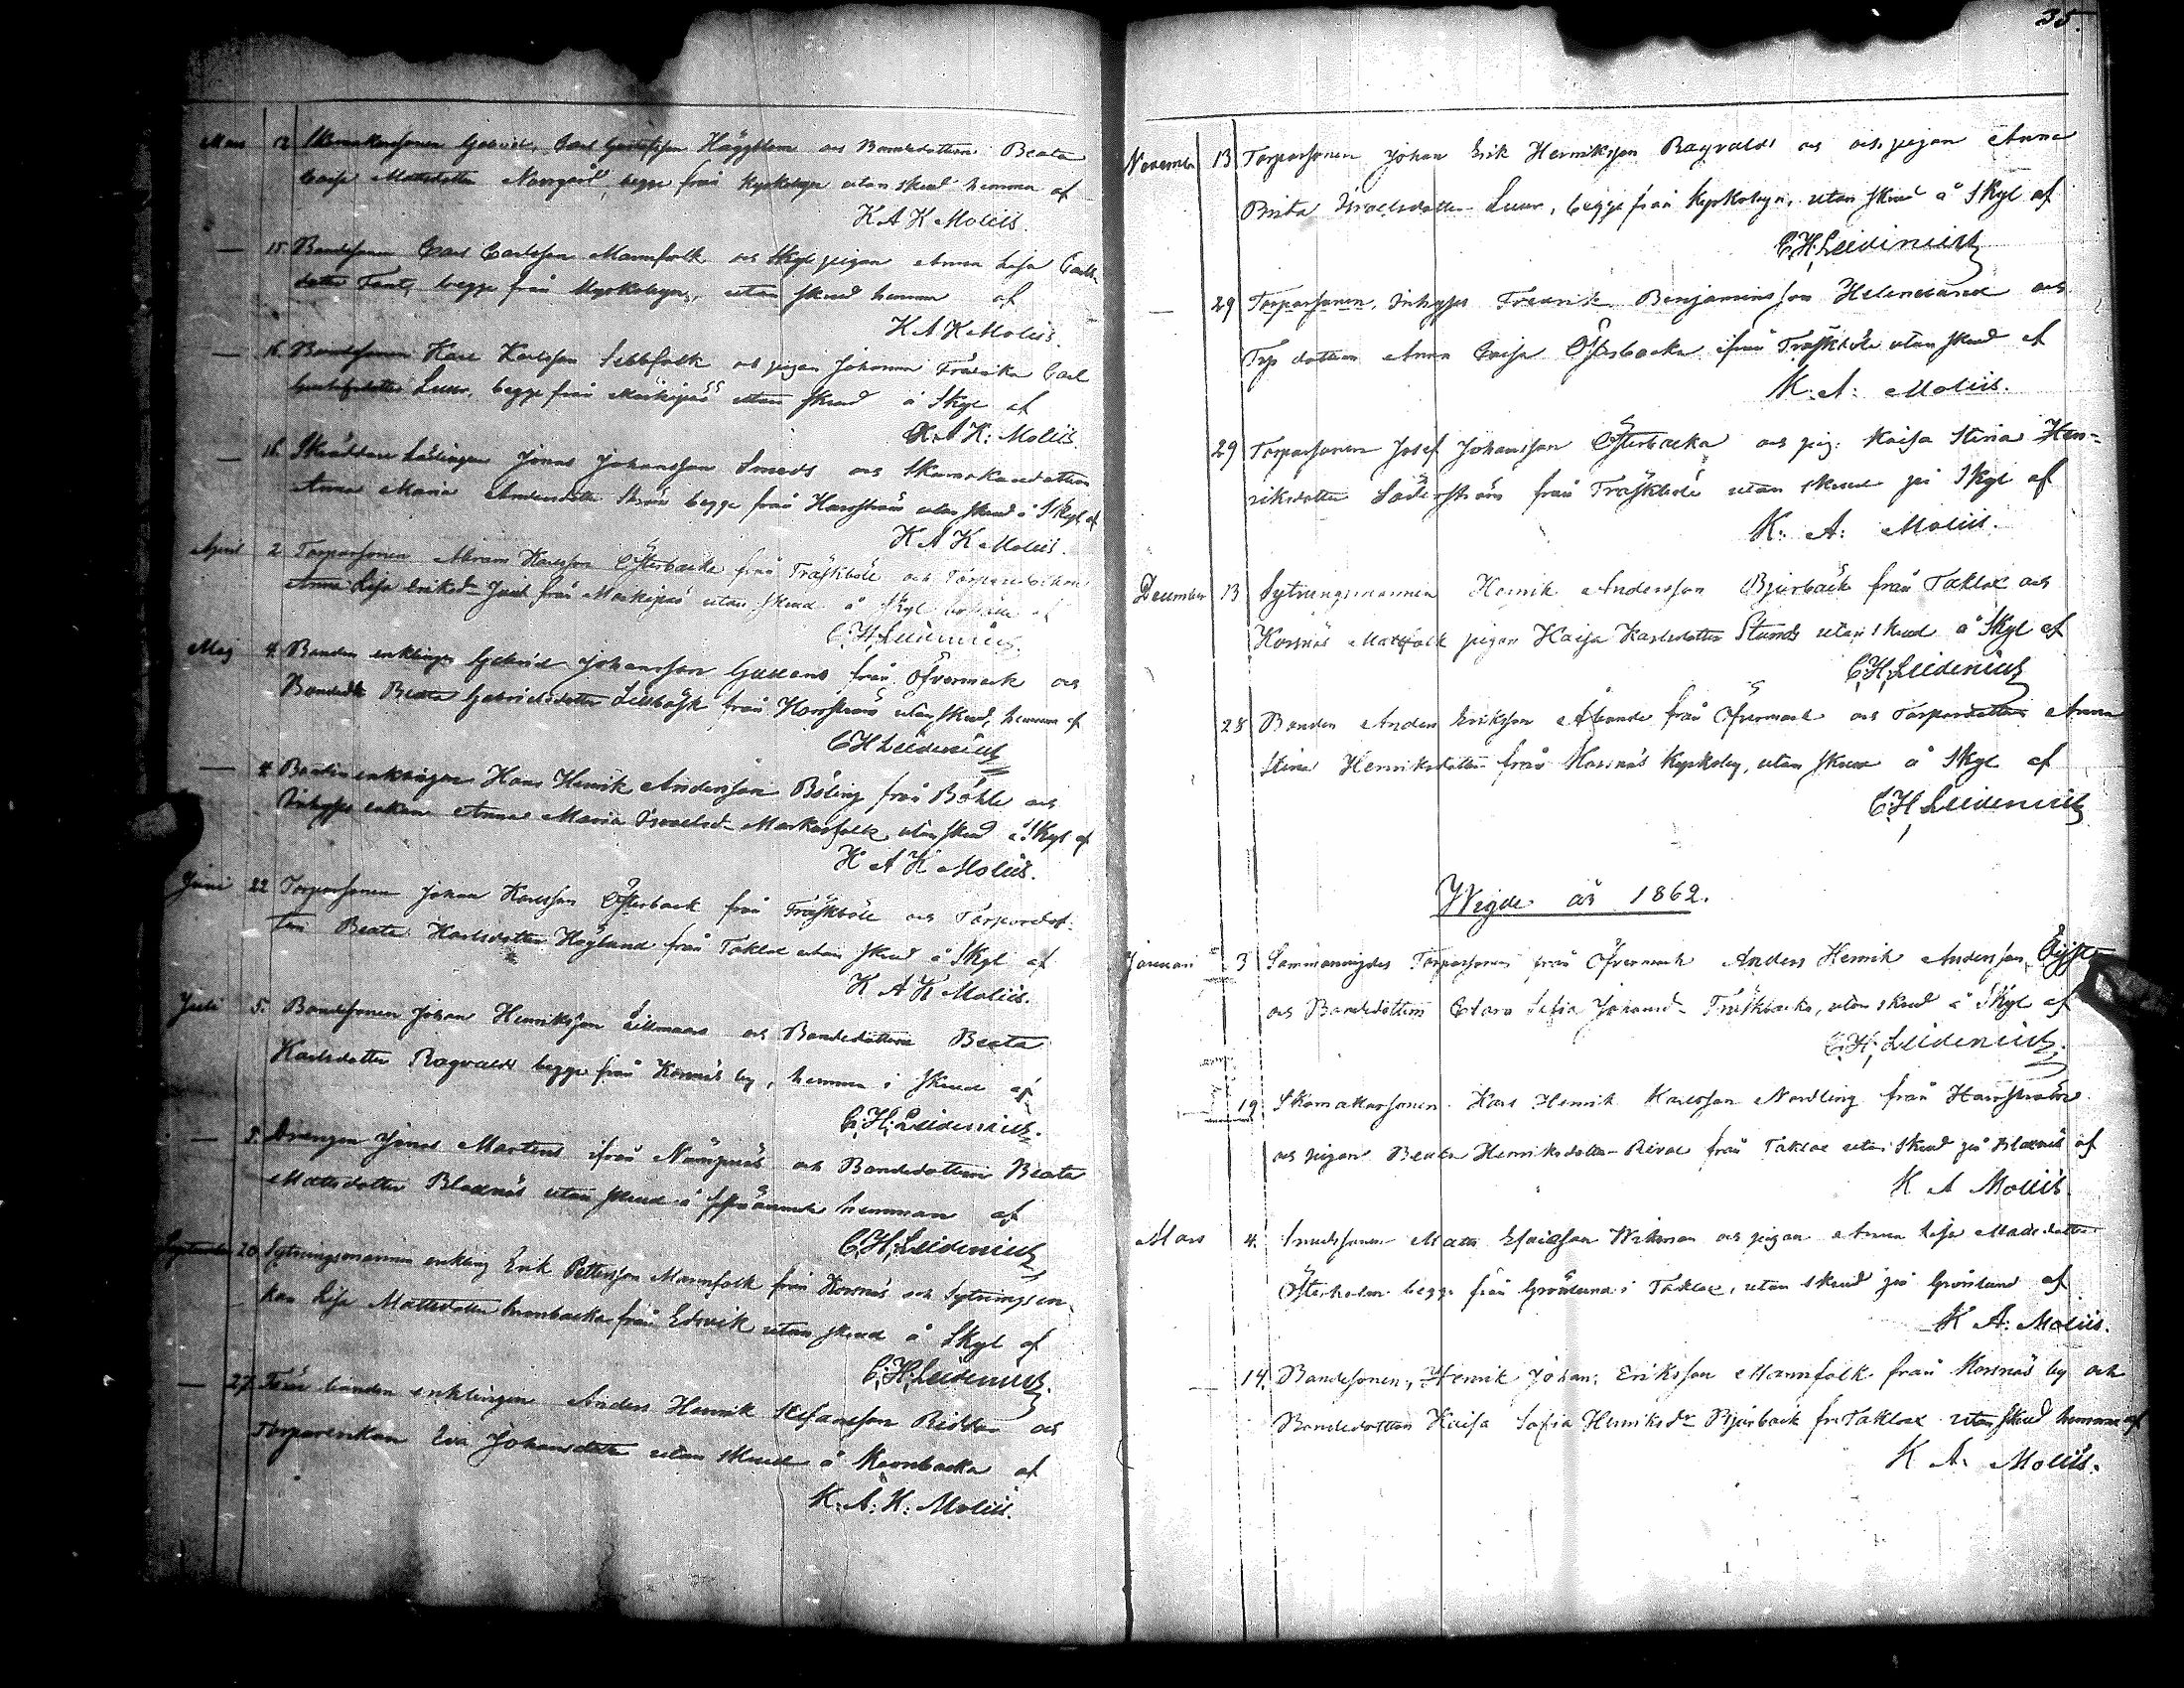 35.
Mars 12 Skomakarsonen Gabriel, Carl Gustafsson Häggblom och Bondedottren Beata
Caisa Mattsdotter Norrgård, begge från Kyrkobyn utan skrud hemma af
K A K Moliis.
— 15. Bondesonen Carl Carlsson Mannfolk och pigan Anna Lisa Carls
dotter Fant, begge från Kyrkobyn, utan skrud hemma af
K A K Moliis.
— 16. Bondesonen Karl Karlsson Sebbfolk och pigan Johanna Fredrika Carl
Gustafsdotter Luur, begge från utan skrud å Skyl af
K. A K: Moliis.
— 16. Skräddare Lärlingen Jonas Johansson Smeds och Skomakaredottren
Anna Maria Andersdotter Ström begge från Harrström utan skrud å Skyl af
K A K Moliis.
April 2 Torparsonen Abram Karlsson Österbacka från Träskböle och Torparedottren
Anna Lisa Eriksd. från utan skrud å Skyl af
C. H. Leidenius.
Maj 4. Bonden enklingen Gabriel Johansson Gullans från Öfvermark och
Bondedtr Beata Gabrielsdotter Lillbåsk från Harrström utan skrud, hemma af
C H Leidenius
— 4. Bonden enklingen Hans Henrik Andersson Böling från Böhle och
Inhyses enkan Anna Maria Israelsd. Markusfolk utan skrud å Skyl af
K A K Moliis.
Juni 22 Torparsonen Johan Karlsson Österback från Träskböle och Torparedot-
tren Beata Karlsdotter Höglund från Taklax utan skrud å Skyl af
K A K Moliis.
Juli 5. Bondesonen Johan Henriksson Lillmans och Bondedottren Beata
Karlsdotter Ragvalds begge från Korsnäs by, hemma i skrud af
C. H. Leidenius.
— 5. Drängen Jonas Martens ifrån Nämpnäs och Bondedottren Beata
Mattsdotter Blaxnäs utan skrud å hemman af
C. H. Leidenius
September 20. Sytningsmannen enkling Erik Pettersson Mannfolk från Korsnäs och Sytningsen-
kan Lisa Mattsdotter Kronbacka från Edsvik utan skrud å Skyl af
C. H. Leidenius.
— 27. Före bonden enklingen Anders Henrik Stefansson Riddar och
Torparenkan Eva Johansdotter utan skrud å Kronbacka af
K. A. K: Moliis.
November 13 Torparsonen Johan Erik Henriksson Ragvalds och pigan Anna
Brita Israelsdotter Luur, begge från Kyrkobyn, utan skrud å Skyl af
C. H. Leidenius
— 29 Torparsonen, Inhyses Fredrik Benjaminsson Helenelund och
Torp dottren Anna Caisa Österbacka ifrån Träskböle utan skrud af
K. A: Moliis.
29 Torparsonen Josef Johansson Österbacka och pig: Kaisa Stina Hen-
riksdotter Söderström från Träskböle utan skrud på Skyl af
K: A: Moliis.
December 13 Sytningsmannen Henrik Andersson Bjurbäck från Taklax och
Korsnäs pigan Kaisa Karlsdotter Stunds utan skrud å Skyl af
C. H. Leidenius
28 Bonden Anders Eriksson Åbonde från Öfvermark och Torpardottren Anna
Stina Henriksdotter från Korsnäs Kyrkoby, utan skrud å Skyl af
C. H. Leidenius
Wigde år 1862.
Januari 3 Sammanvigdes Torparsonen från Öfvermark Anders Henrik Andersson
och Bondedottren Clara Sofia Johansd. Träskbacka, utan skrud å Skyl af
C. H. Leidenius.
— 19 Skomakarsonen Karl Henrik Karlsson Nordling från Harrström
och pigan Beata Henriksdotter från Taklax utan skrud på Blaxnäs af
K A Moliis.
Mars 4. Matts Esaiasson Wikman och pigan Anna Lisa Madsdotter
Österholm begge från Grönlund i Taklax, utan skrud på Grönlund af
K A: Moliis.
— 14. Bondesonen, Henrik Johan, Eriksson Mannfolk från Korsnäs by och
Bondedottren Kaisa Sofia Henriksdr Bjurback fr. Taklax utan skrud hemma af
K A. Moliis.